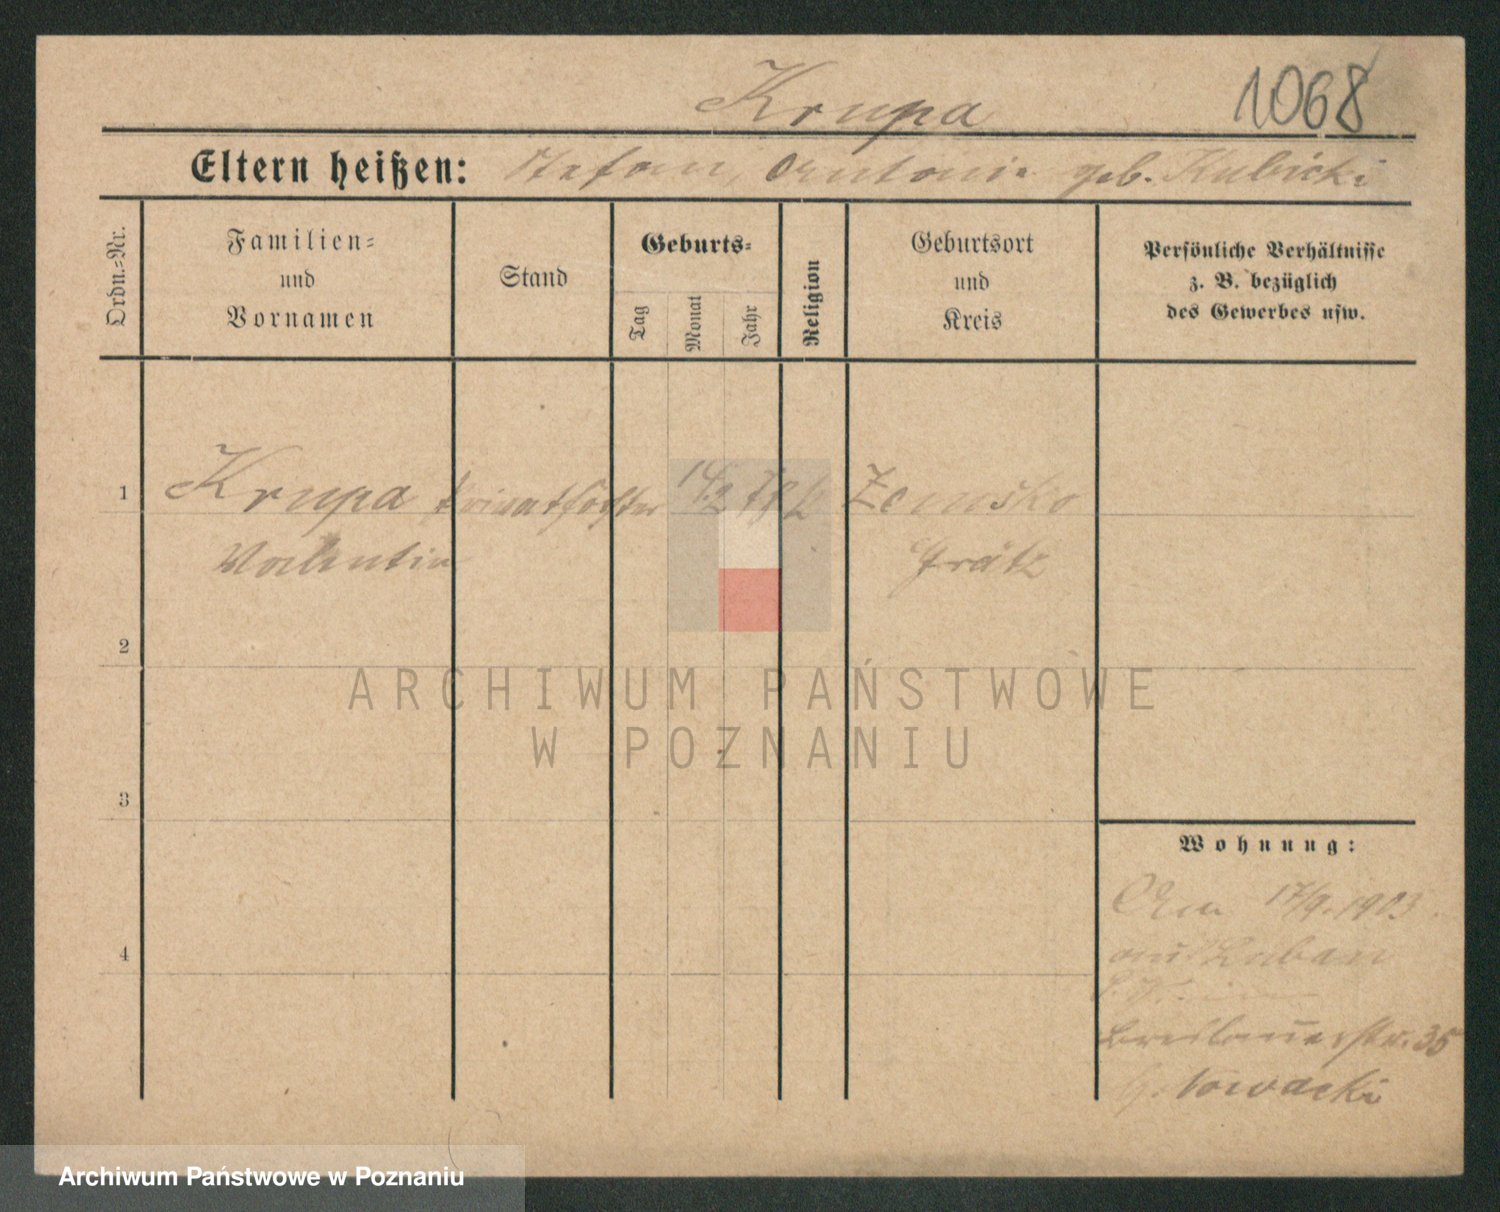 Krupa 1068
Eltern heißen: Stefan, Antonie geb. Kubicki
Ordn.=Nr.
Familien=
und
Vornamen
Stand
Geburts=
Tag
Monat
Jahr
Religion
Geburtsort
und
Kreis
Persönliche Verhältnisse
z. B. bezüglich
des Gewerbes usw.
1 Krupa 14/2 Zemsko
Valentin Grätz
2
ARCHIWUM PAŃSTWOWE
W POZNANIU
3
Wohnung:
17/9. 1903
aus Luban
4
Breslauerstr. 35
Nowacki
Archiwum Państwowe w Poznaniu